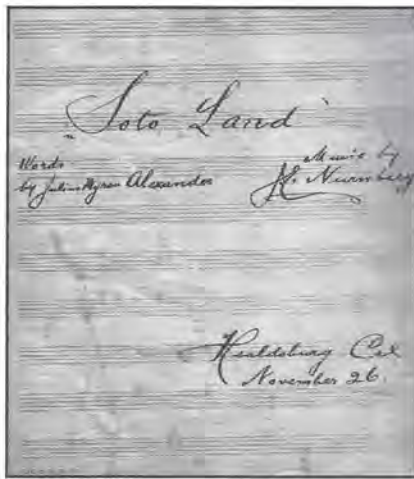 "Soto Land"
Words
by Julius Myron Alexander
Music by
Nurnberg
Healdsburg Cal
November 26.